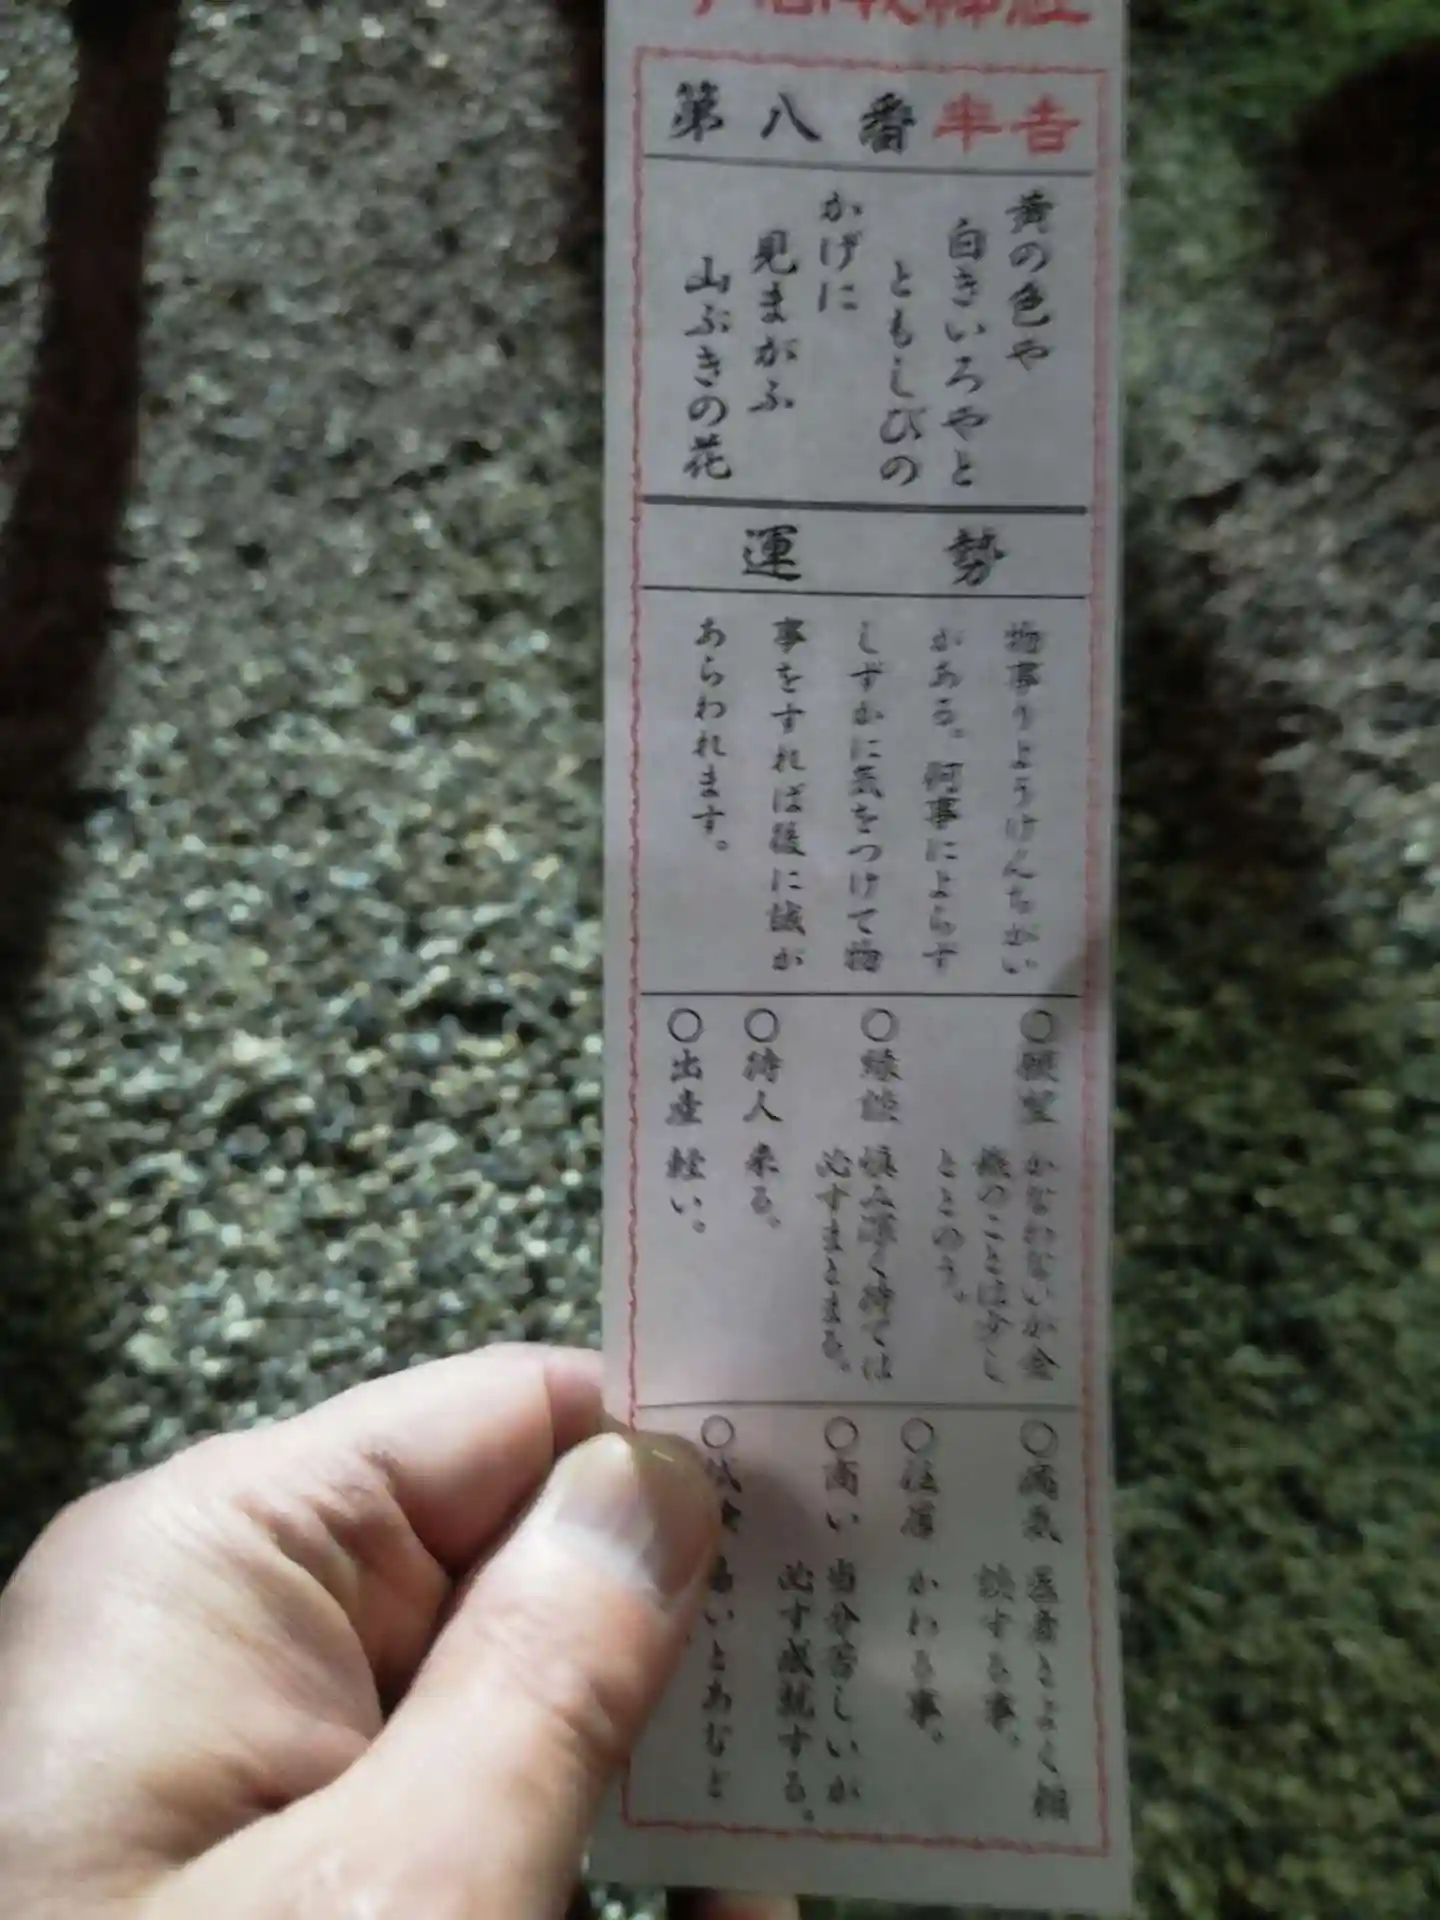 神社
第八番 半吉
黄の色や
白きいろやと
ともしびの
かげに
見まがふ
山ぶきの花
運勢
物事りようけんちがい
がある。何事によらず
しずかに気をつけて物
事をすれば後に誠が
あらわれます。
○願望 かなわないが金
談のことは少し
ととのう。
○縁談 慎み深く待てば
必ずまとまる。
○待人 来る。
○出産 軽い。
○病気 医者とよく相
談する事。
○住居 かわる事。
○商い 当分苦しいが
必ず成就する。
○試験 いとあなど